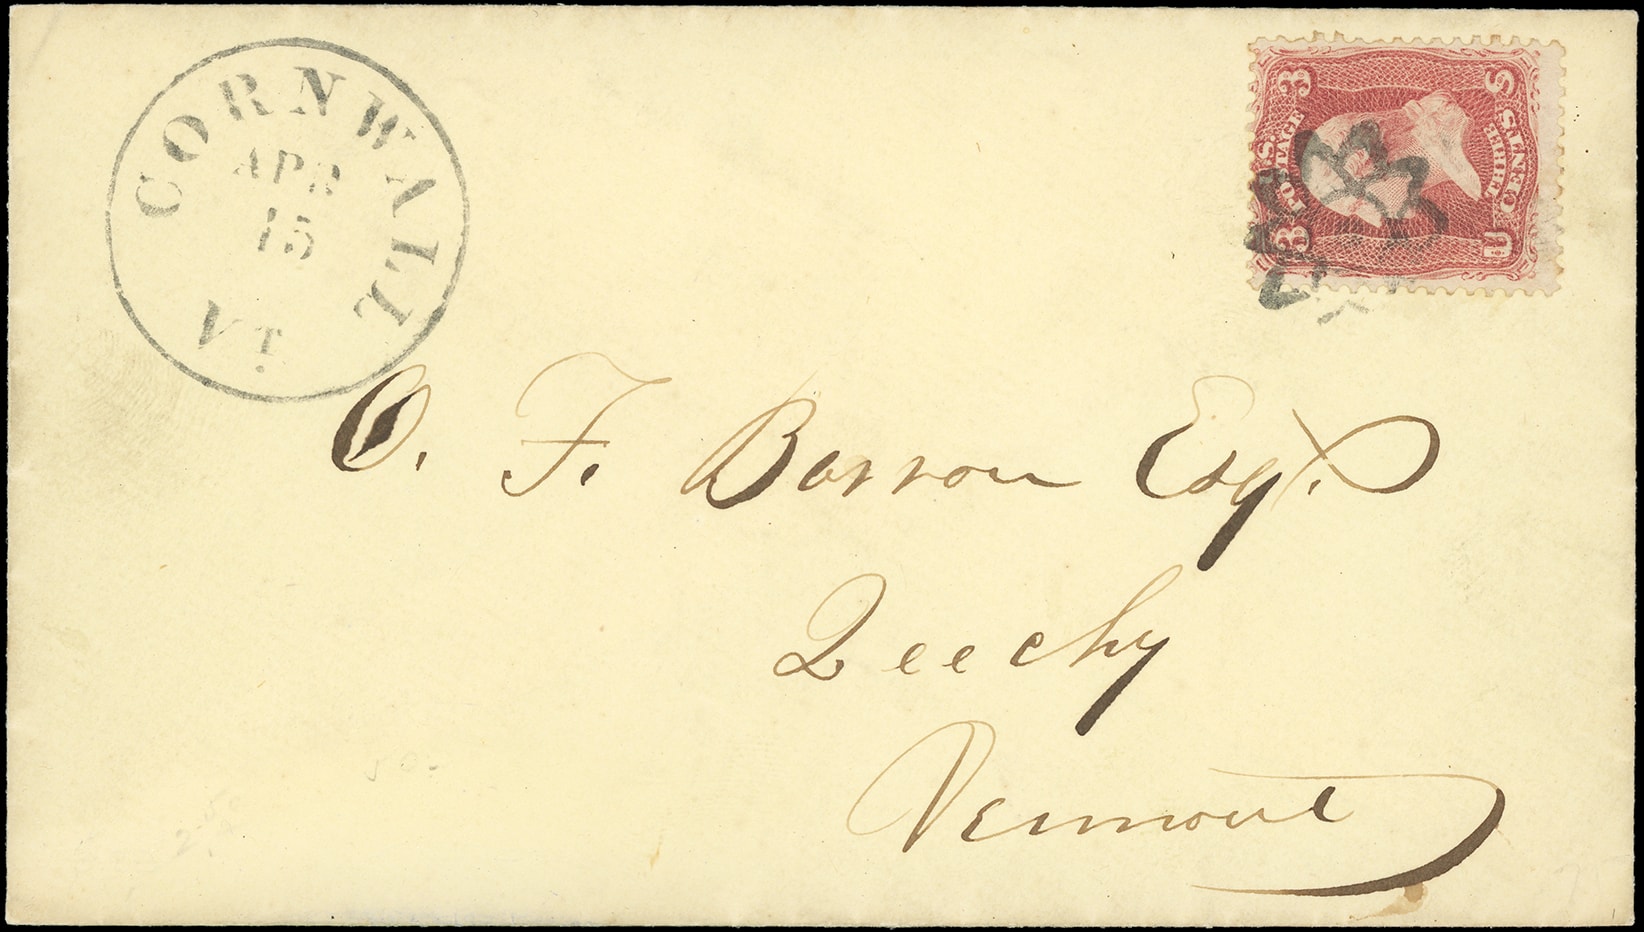 CORNWALL
APR
15
VT.
U S
POSTAGE
3 3
THREE
CENTS
O. F. Barron Esq.
Queechy
Vermont